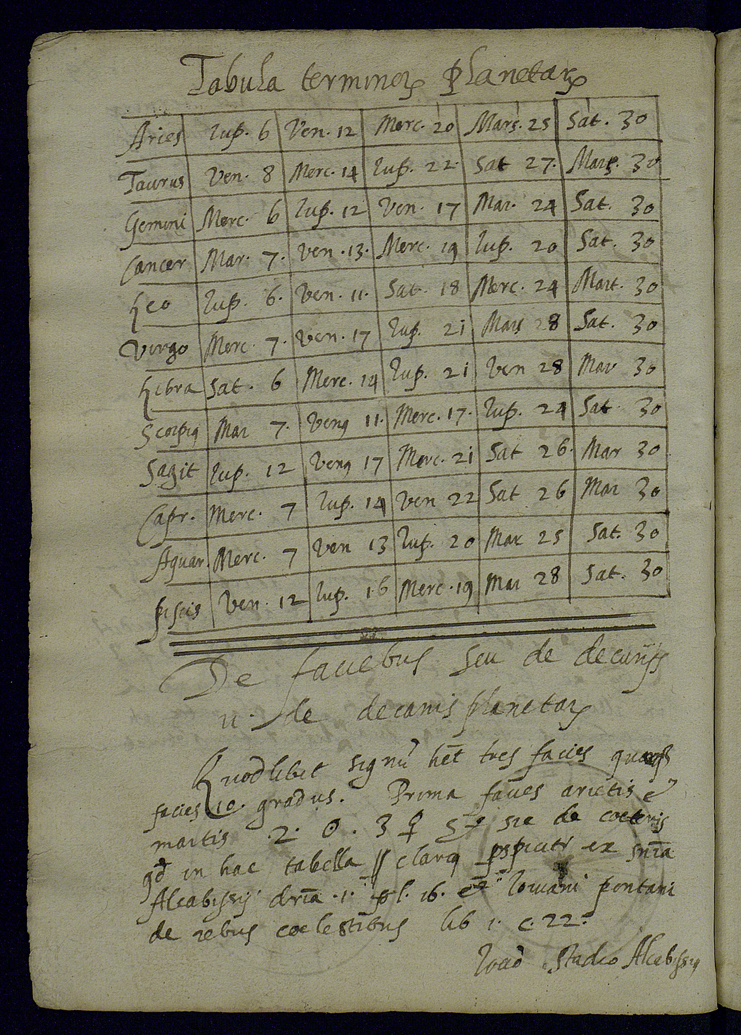 Tabula terminoꝝ planetaꝝ
Aries Iup. 6 Ven. 12 Merc. 20 Mars. 25 Sat. 30
Taurus Ven. 8 Merc. 14 Iup. 22. Sat 27. Mars. 30
Gemini Merc. 6 Iup. 12 Ven. 17 Mar. 24 Sat. 30
Cancer Mar. 7. Ven. 13. Merc. 19 Iup. 20 Sat. 30
Leo Iup. 6. Ven. 11. Sat. 18 Merc. 24 Mart. 30
Virgo Merc. 7. Ven. 17 Iup. 21 Mars 28 Sat. 30
Libra Sat. 6 Merc. 14 Iup. 21 Ven 28 Mar 30
Scorpiꝯ Mar 7. Venꝯ 11. Merc. 17. Iup. 24 Sat. 30
Sagit Iup. 12 Venꝯ 17 Merc. 21 Sat 26. Mar 30
Capr. Merc. 7 Iup. 14 Ven 22 Sat 26 Mar 30
Aquar Merc. 7 Ven 13 Iup. 20 Mar 25 Sat. 30
piscis Ven. 12 Iup. 16 Merc. 19 Mar 28 Sat. 30
De faciebus seu de decurijs
de decanis planetaꝝ
Quodlibet signū hēt tres facies
facies 10. gradus. Prima facies arietis ē
martis 2. ☉. 3 ♀ sic de coeteris
qd in hac tabella clarꝯ ex
Alcabissij dr̄ia .1. Iouiani pontani
de rebus coelestibus lib 1. c. 22.
Stadio